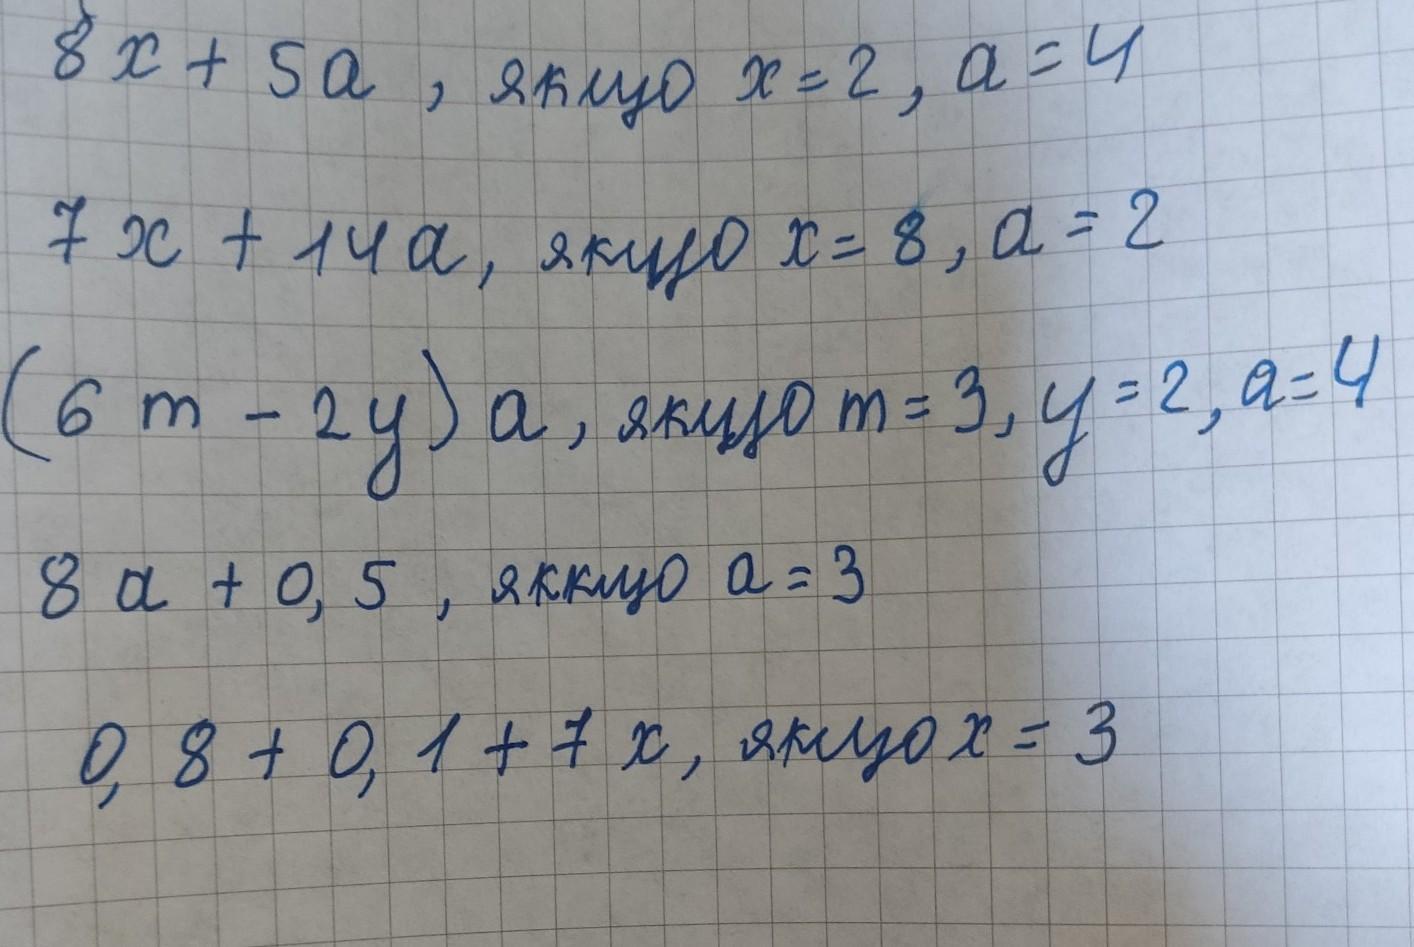 8x + 5a, якщо x = 2, a = 4
7x + 14a, якщо x = 8, a = 2
(6m - 2y)a, якщо m = 3, y = 2, a = 4
8a + 0,5, яккщо a = 3
0,8 + 0,1 + 7x, якщо x = 3